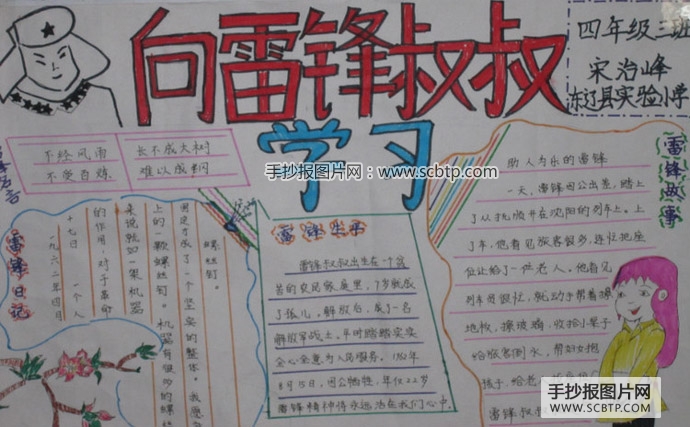 向雷锋叔叔
学习
四年级三班
宋治峰
东辽县实验小学
不经风雨 长不成大树
不受百炼 难以成钢
手抄报图片网:www.scbtp.com
雷锋日记
一九六二年四月
十七日 一个人
的作用,对于革命
来说就如一架机器
上的一颗螺丝钉。机器有很多的螺丝
固定才成了一个坚实的整体。我愿
螺丝钉。
雷锋生平
雷锋叔叔出生在一个贫
苦的农民家庭里,7岁就成
了孤儿。解放后,成了一名
解放军战士,平时踏踏实实
全心全意为人民服务。1962年
8月15日,因公牺牲,年仅22岁
雷锋精神将永远活在我们心中.
雷锋故事
助人为乐的雷锋
一天,雷锋因公出差,踏上
了从抚顺开往沈阳的列车上。上
了车,他看见旅客很多,连忙把座
位让给了一位老人。他看见
列车员很忙,就动手帮着擦
地板,擦玻璃,收拾小桌子
给旅客倒水,帮妇女抱
孩子,给老
雷锋叔
手抄报图片网
WWW.SCBTP.COM